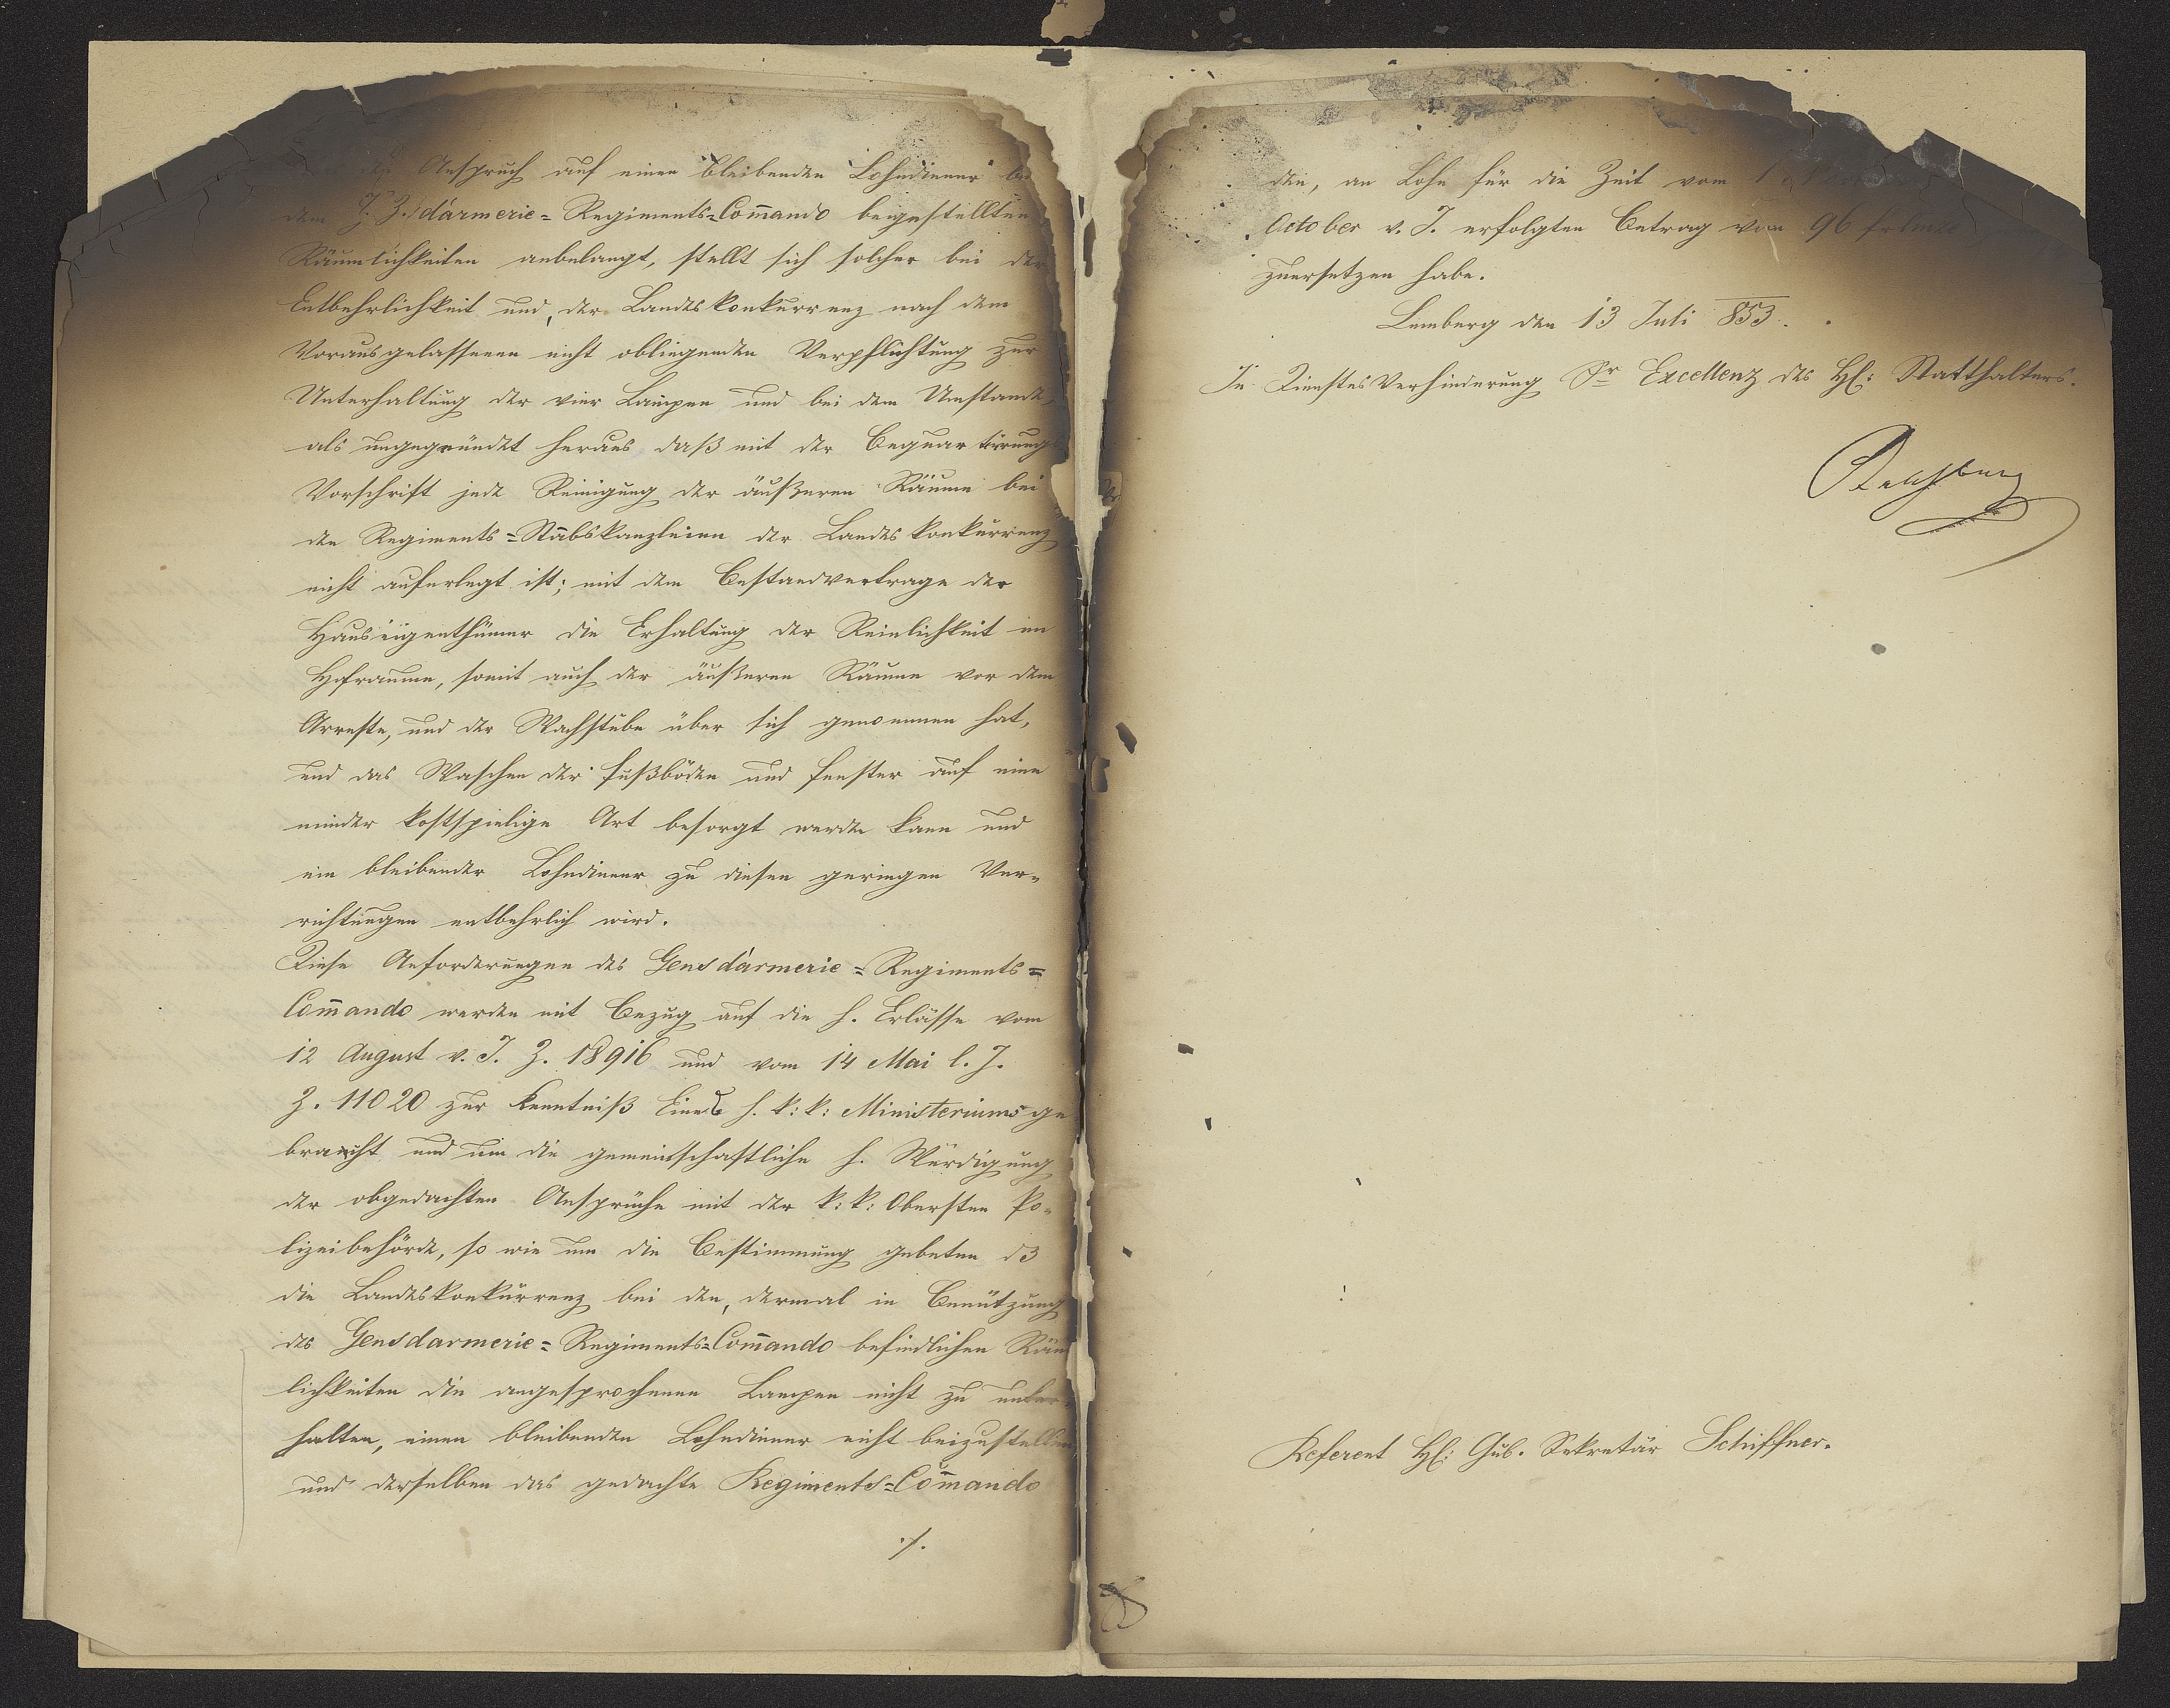 Anspruch auf einen bleibenden Lohndiener bei
dem dàrmerie= Regiments=Com̄ando beigestellten
Räumlichkeiten anbelangt, stellt sich solcher bei der
Entbehrlichkeit und, der Landeskonkurrenz nach dem
Vorausgelassenen nicht obliegenden Verpflichtung zur
Unterhaltung der vier Lampen und bei dem Umstande,
als ungegründet heraus daß mit der Bequartirungs
Vorschrift jede Reinigung der äußeren Räume bei
den Regiments=Stabskanzleien der Landeskonkurrenz
nicht auferlegt ist; mit dem Bestandvertrage der
Hauseigenthümer die Erhaltung der Reinlichkeit im
Hofraume, somit auch der äußeren Räume vor dem
Arreste, und der Wachstube über sich genommen hat,
und das Waschen der Fußböden und Fenster auf eine
minder kostspielige Art besorgt werden kann und
ein bleibender Lohndiener zu diesen geringen Ver=
richtungen entbehrlich wird.
Diese Anforderungen des Gensdàrmerie=Regiments=
Com̄ando werden mit Bezug auf die h. Erlässe vom
12 August v. J. Z. 18916 und vom 14 Mai l. J.
Z. 11020 zur Kenntniß Eines h. k: k: Ministeriums ge
bracht und um die gemeinschaftliche h. Würdigung
der obgedachten Ansprüche mit der k: k: Obersten Po=
lizeibehörde, so wie um die Bestimmung gebeten dß
die Landeskonkurrenz bei den, dermal in Benützung
des Gensdarmerie=Regiments=Com̄ando befindlichen Räum
lichkeiten die angesprochenen Lampen nicht zu unter
halten, einen bleibenden Lohndiener nicht beizustellen
und derselben das gedachte Regiments=Com̄ando
./.
den, an Lohn für die Zeit vom 1
October v. J. erfolgten Betrag von 96 fr
zuersetzen habe.
Lemberg den 13 Juli 853.
In Dienstes Verhinderung Sr Excellenz des H: Statthalters.
Referent H: Gub. Sekretär Schiffner.